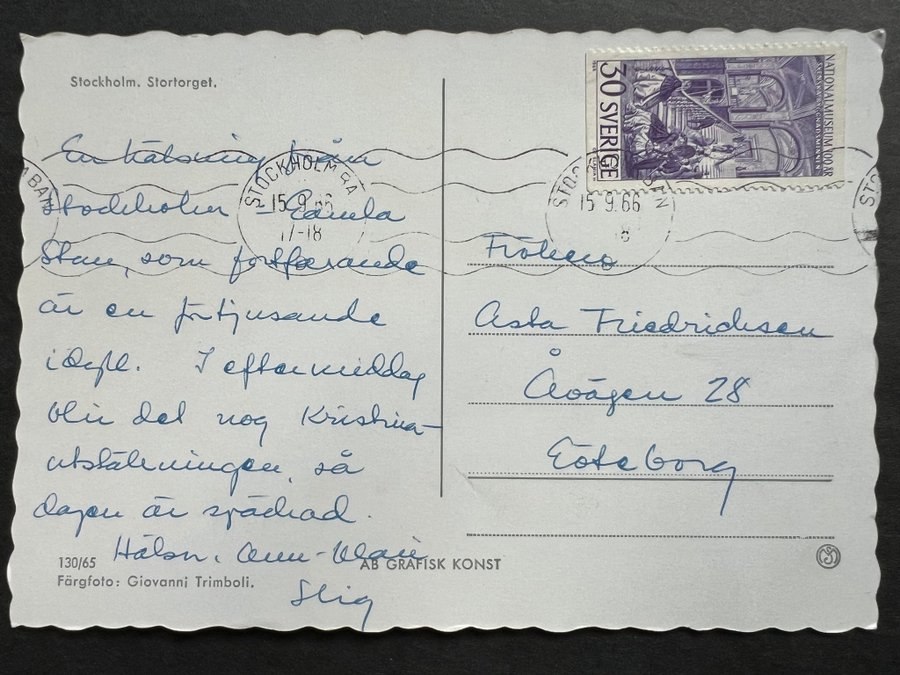 Stockholm. Stortorget.
En hälsning från
Stockholm - Gamla
Stan, som fortfarande
är en förtjusande
idyll. I eftermiddag
blir det nog Kristina-
utställningen, så
dagen är späckad.
Hälsn. Ann-Mari
Stig
130/65
Färgfoto: Giovanni Trimboli.
AB GRAFISK KONST
STOCKHOLM BAN
15.9.66
17-18
NATIONALMUSEUM 100 ÅR
30 SVERIGE
STO BAN
15 9.66
Fröken
Asta Friedrichsen
Åvägen 28
Göteborg